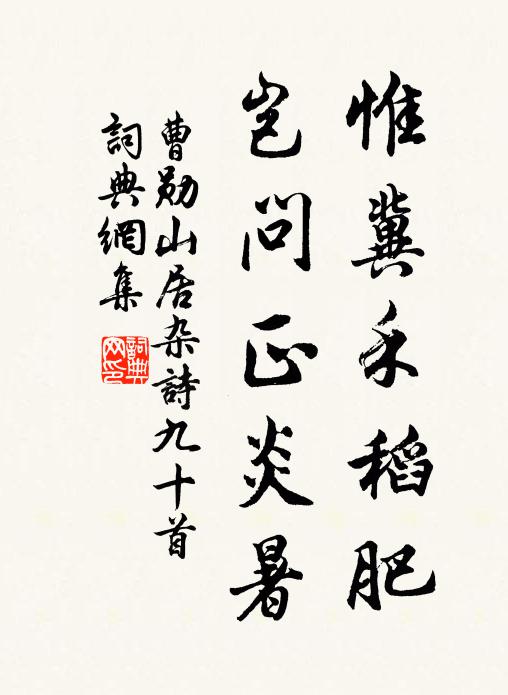 惟冀禾稻肥
豈问正炎暑
曹勛山居杂詩九十首
詞典網集
詞典網印